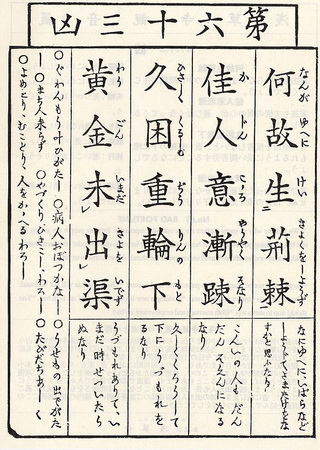 第六十三凶
なんが ゆへに けい きよくをしようず
何故生荊棘
なにゆへにいばらなど
しようじてさまたげをな
すかと思ふなり
か じん こゝろ やうやく
佳人意漸踈
こんいの人もだん
だんそゑんになる
なり
ひさしく くるしむ ぢう りんの もと
久困重輪下
久しくくろうして
下にうづもれを
るなり
わう ごん いまだ きよを いでず
黄金未出渠
うづもれありて、い
まだ時せついたら
ぬなり
○ぐわんもう叶ひがたし ○病人おぼつかなし ○うせもの出でがた
し ○まち人来らず ○やづくり、ひきこし、わろし ○たびだちあしく
○よめとり、むことり、人をかゝへるわろし